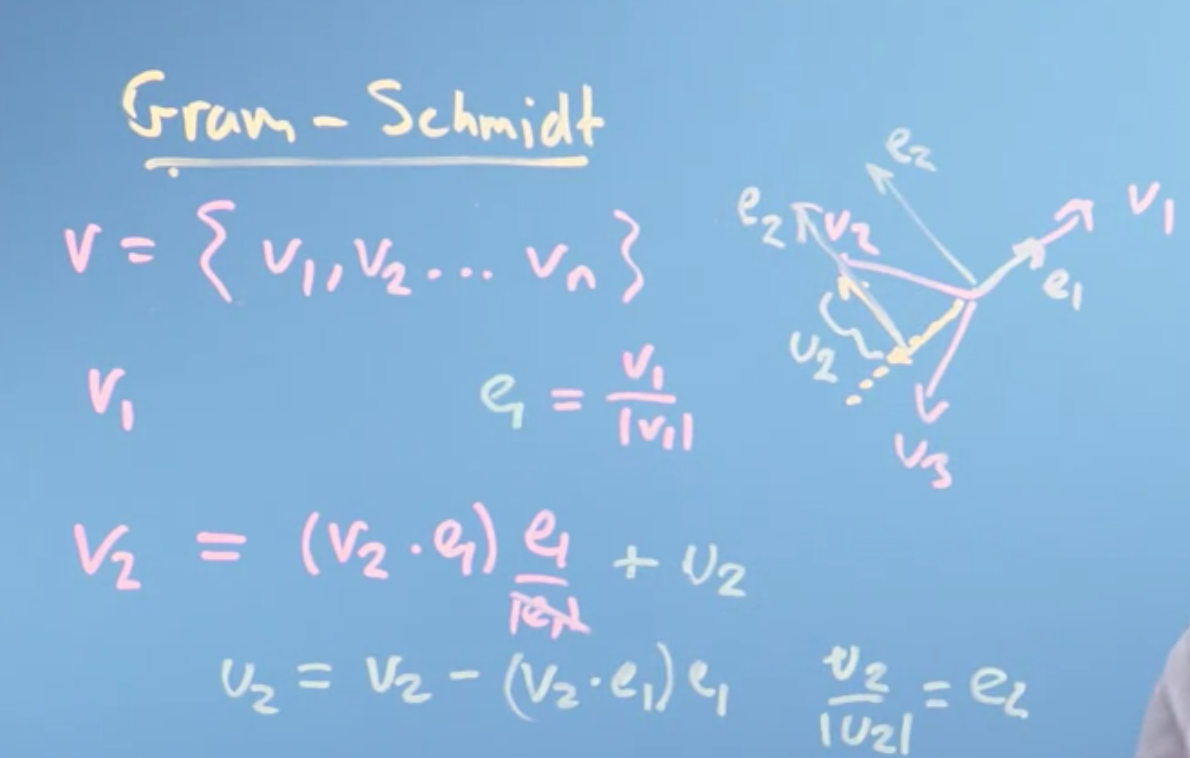 Gram - Schmidt
V = { v₁, v₂ ... vₙ }
v₁ e₁ = v₁ / |v₁|
v₂ = (v₂ · e₁) e₁ / |e₁| + u₂
u₂ = v₂ - (v₂ · e₁) e₁ u₂ / |u₂| = e₂
e₂
e₂ v₂ v₁
e₁
u₂
v₃